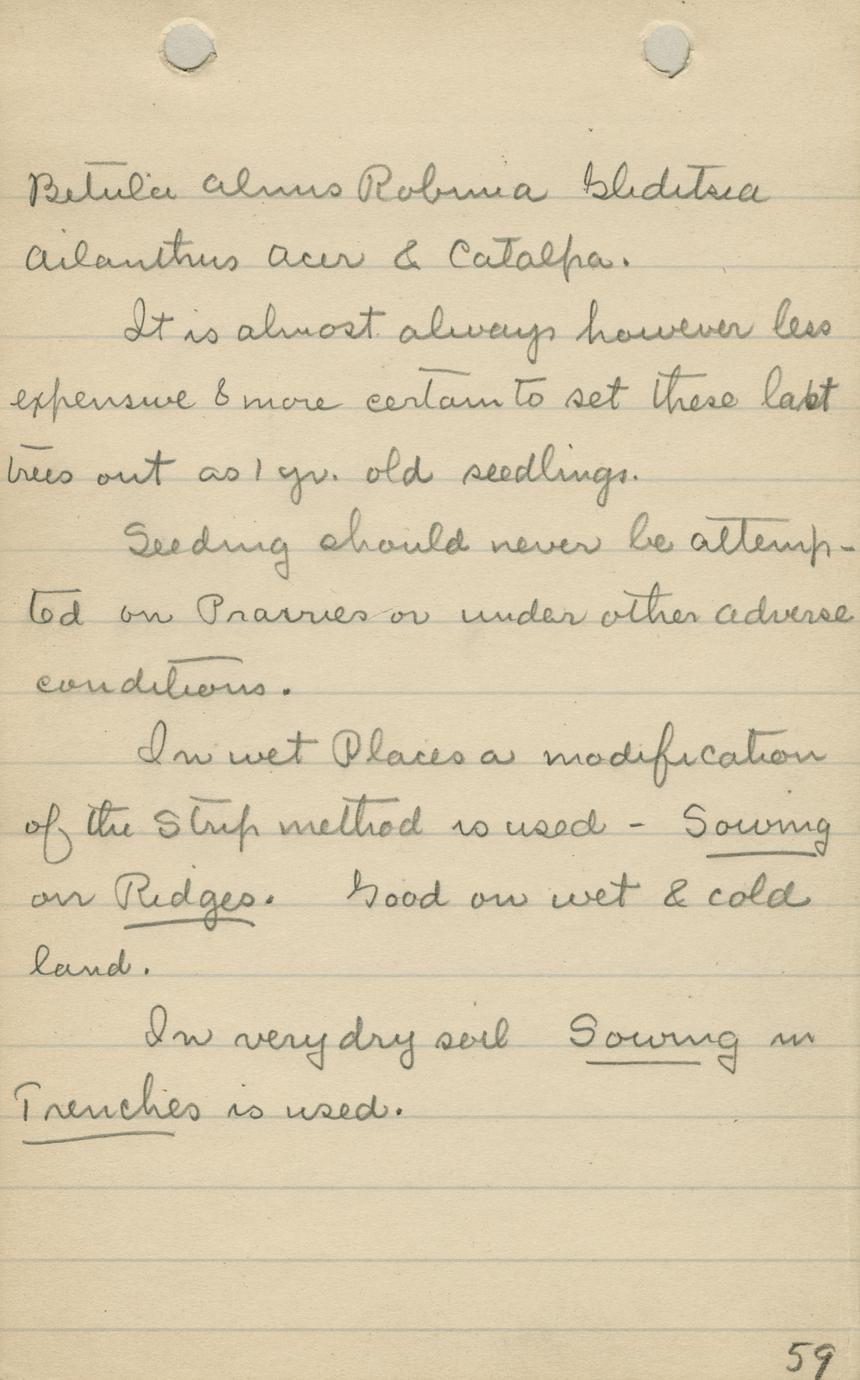 Betula Alnus Robinia Gleditsia
Ailanthus Acer & Catalpa.
It is almost always however less
expensive & more certain to set these last
trees out as 1 yr. old seedlings.
Seeding should never be attemp-
ted on Prairies or under other adverse
conditions.
In wet Places a modification
of the Strip method is used - Sowing
on Ridges. Good on wet & cold
land.
In very dry soil Sowing in
Trenches is used.
59